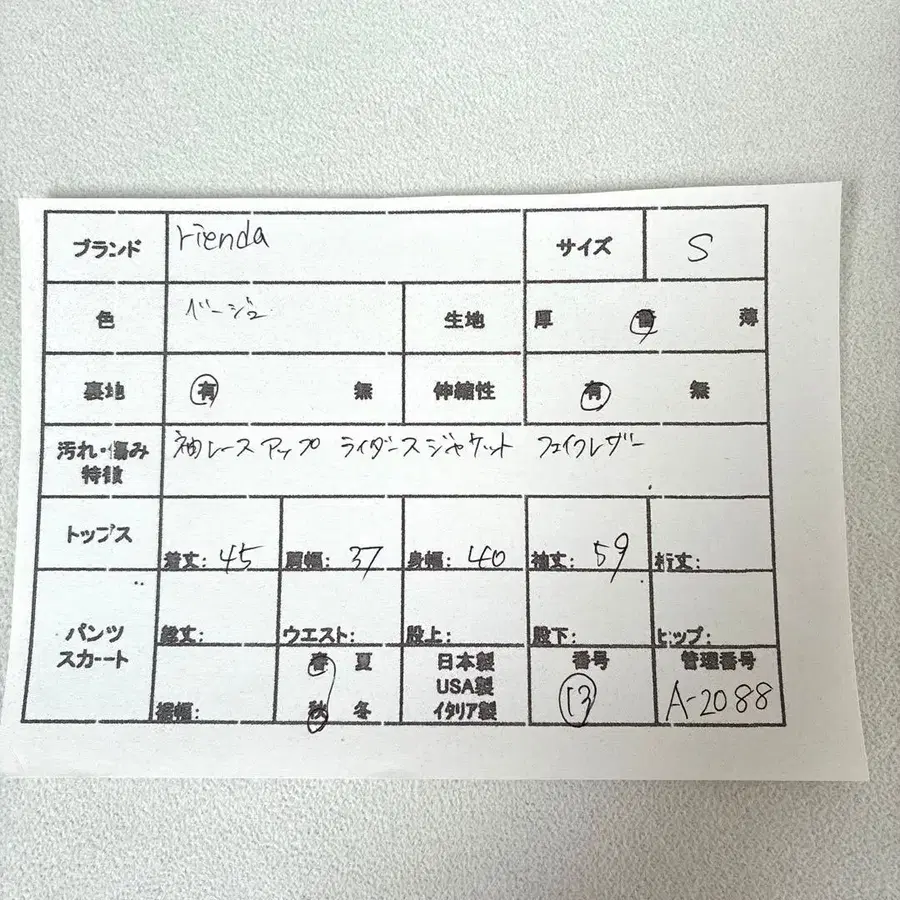 ブランド rienda サイズ S
色 ベージュ 生地 厚 普 薄
裏地 有 無 伸縮性 有 無
汚れ・傷み 袖レースアップ ライダースジャケット フェイクレザー
特徴
トップス 着丈: 45 肩幅: 37 身幅: 40 袖丈: 59 裄丈:
パンツ
スカート
総丈: ウエスト: 股上: 股下: ヒップ:
裾幅:
春 夏
秋 冬
日本製
USA製
イタリア製
番号
13
管理番号
A-2088